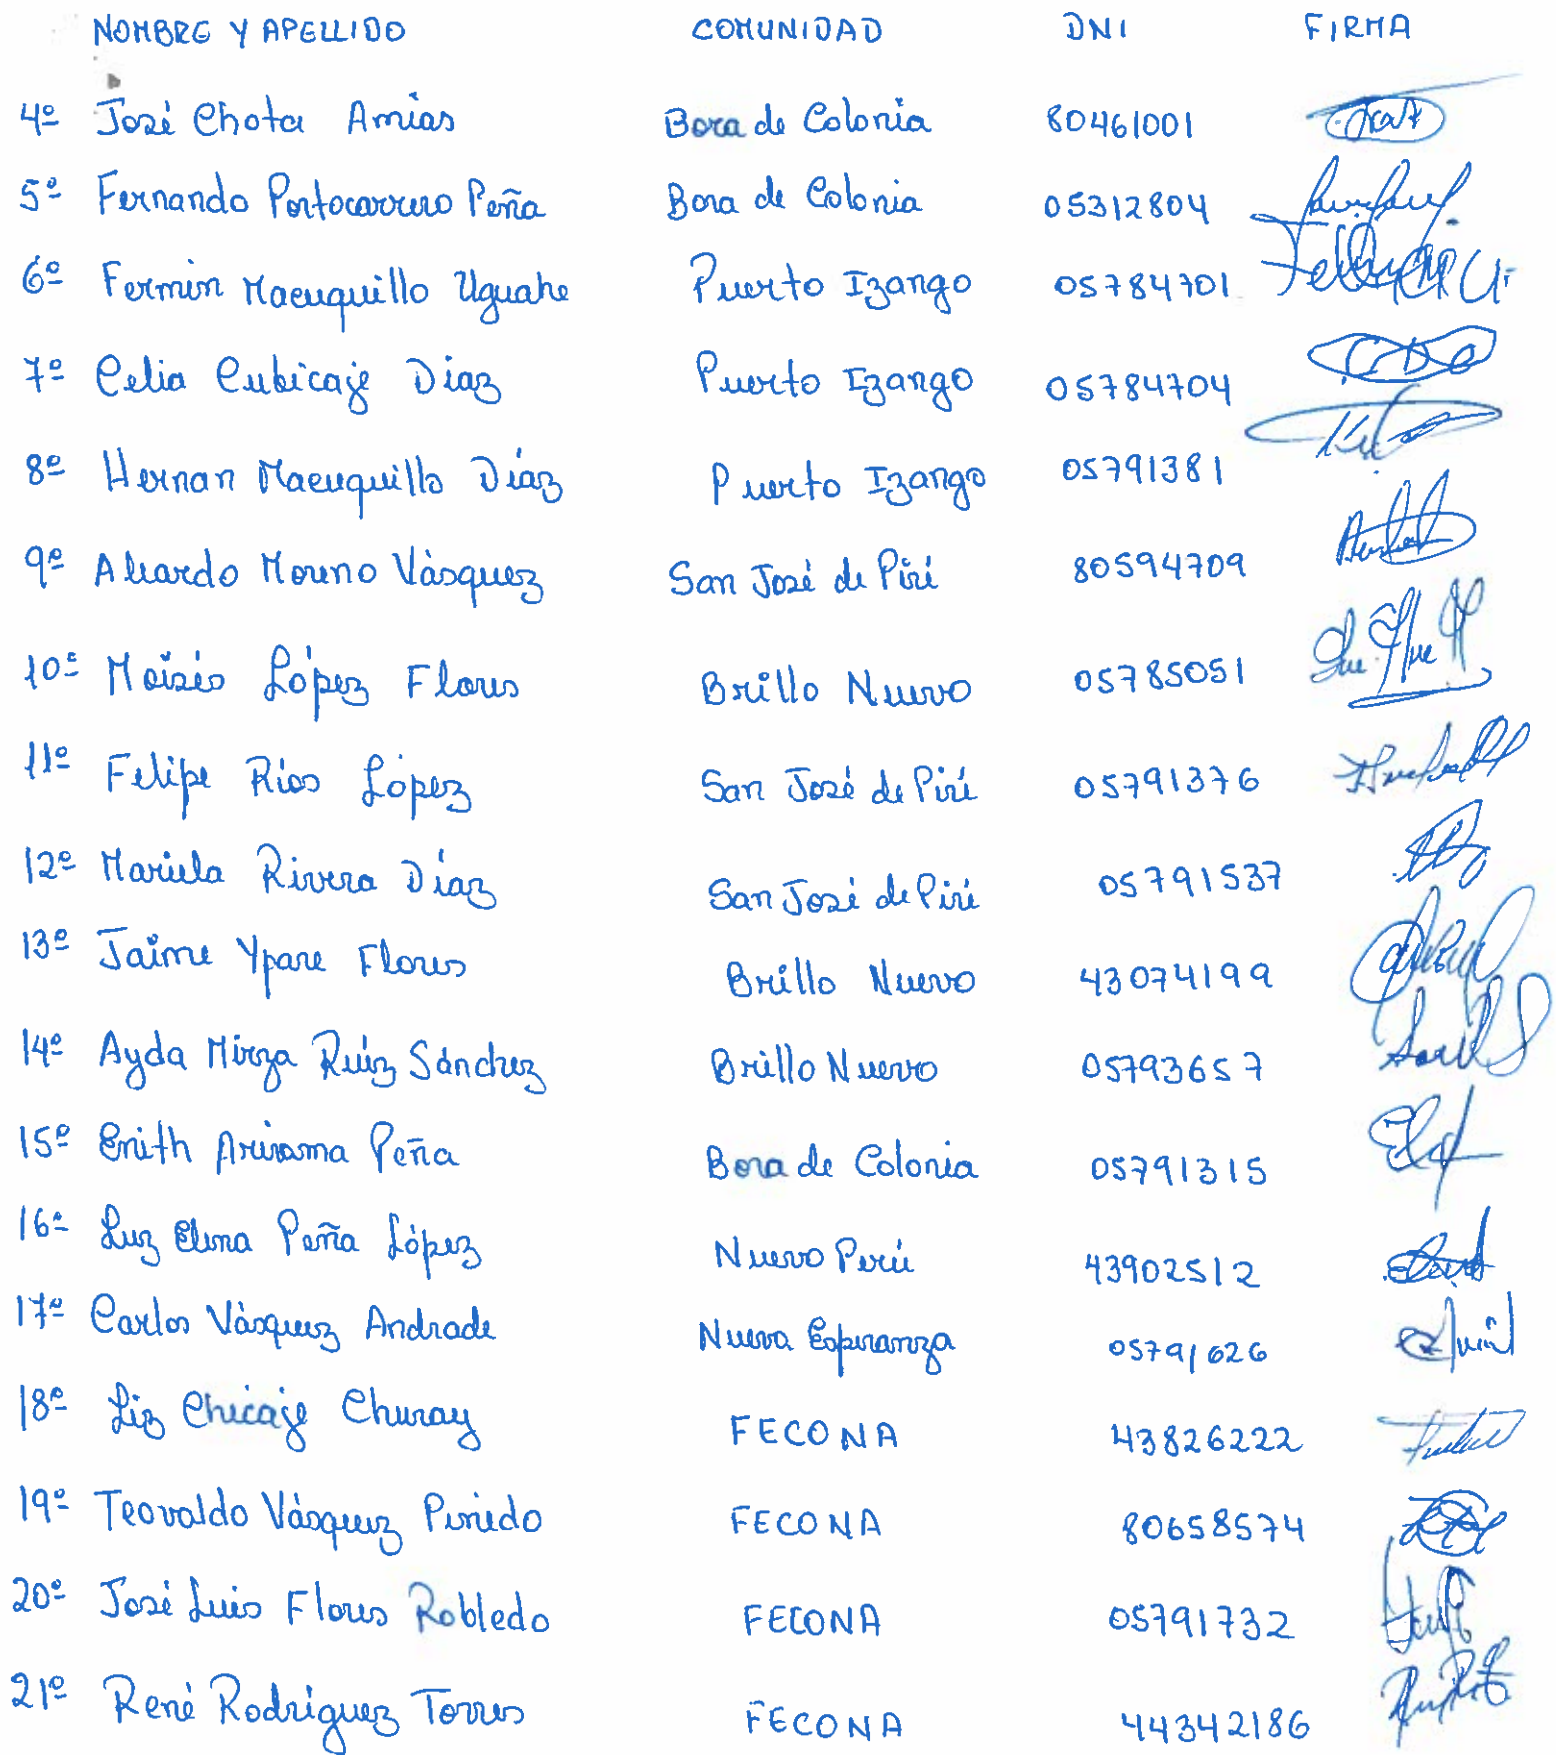 NOMBRE Y APELLIDO COMUNIDAD DNI FIRMA
4º José Chota Amias Bora de Colonia 80461001
5º Fernando Portocarrero Peña Bora de Colonia 05312804
6º Fermin Macuquillo Uguahe Puerto Izango 05784701
7º Celia Cubicaje Diaz Puerto Izango 05784704
8º Hernan Macuquillo Díaz Puerto Izango 05791381
9º Alvardo Moreno Vàsquez San José de Piri 80594709
10º Moisés López Flores Brillo Nuevo 05785051
11º Felipe Rios López San José de Piri 05791376
12º Mariela Rivera Díaz San José de Piri 05791537
13º Jaime Ypare Flores Brillo Nuevo 43074199
14º Ayda Mirza Ruíz Sánchez Brillo Nuevo 05793657
15º Enith Arirama Peña Bora de Colonia 05791315
16º Luz Elena Peña López Nuevo Perú 43902512
17º Carlos Vàsquez Andrade Nueva Esperanza 05791626
18º Liz Chicaje Churay FECONA 43826222
19º Teovaldo Vásquez Pinedo FECONA 80658574
20º José Luis Flores Robledo FECONA 05791732
21º René Rodríguez Torres FECONA 44342186